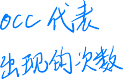 occ 代表
出现的次数